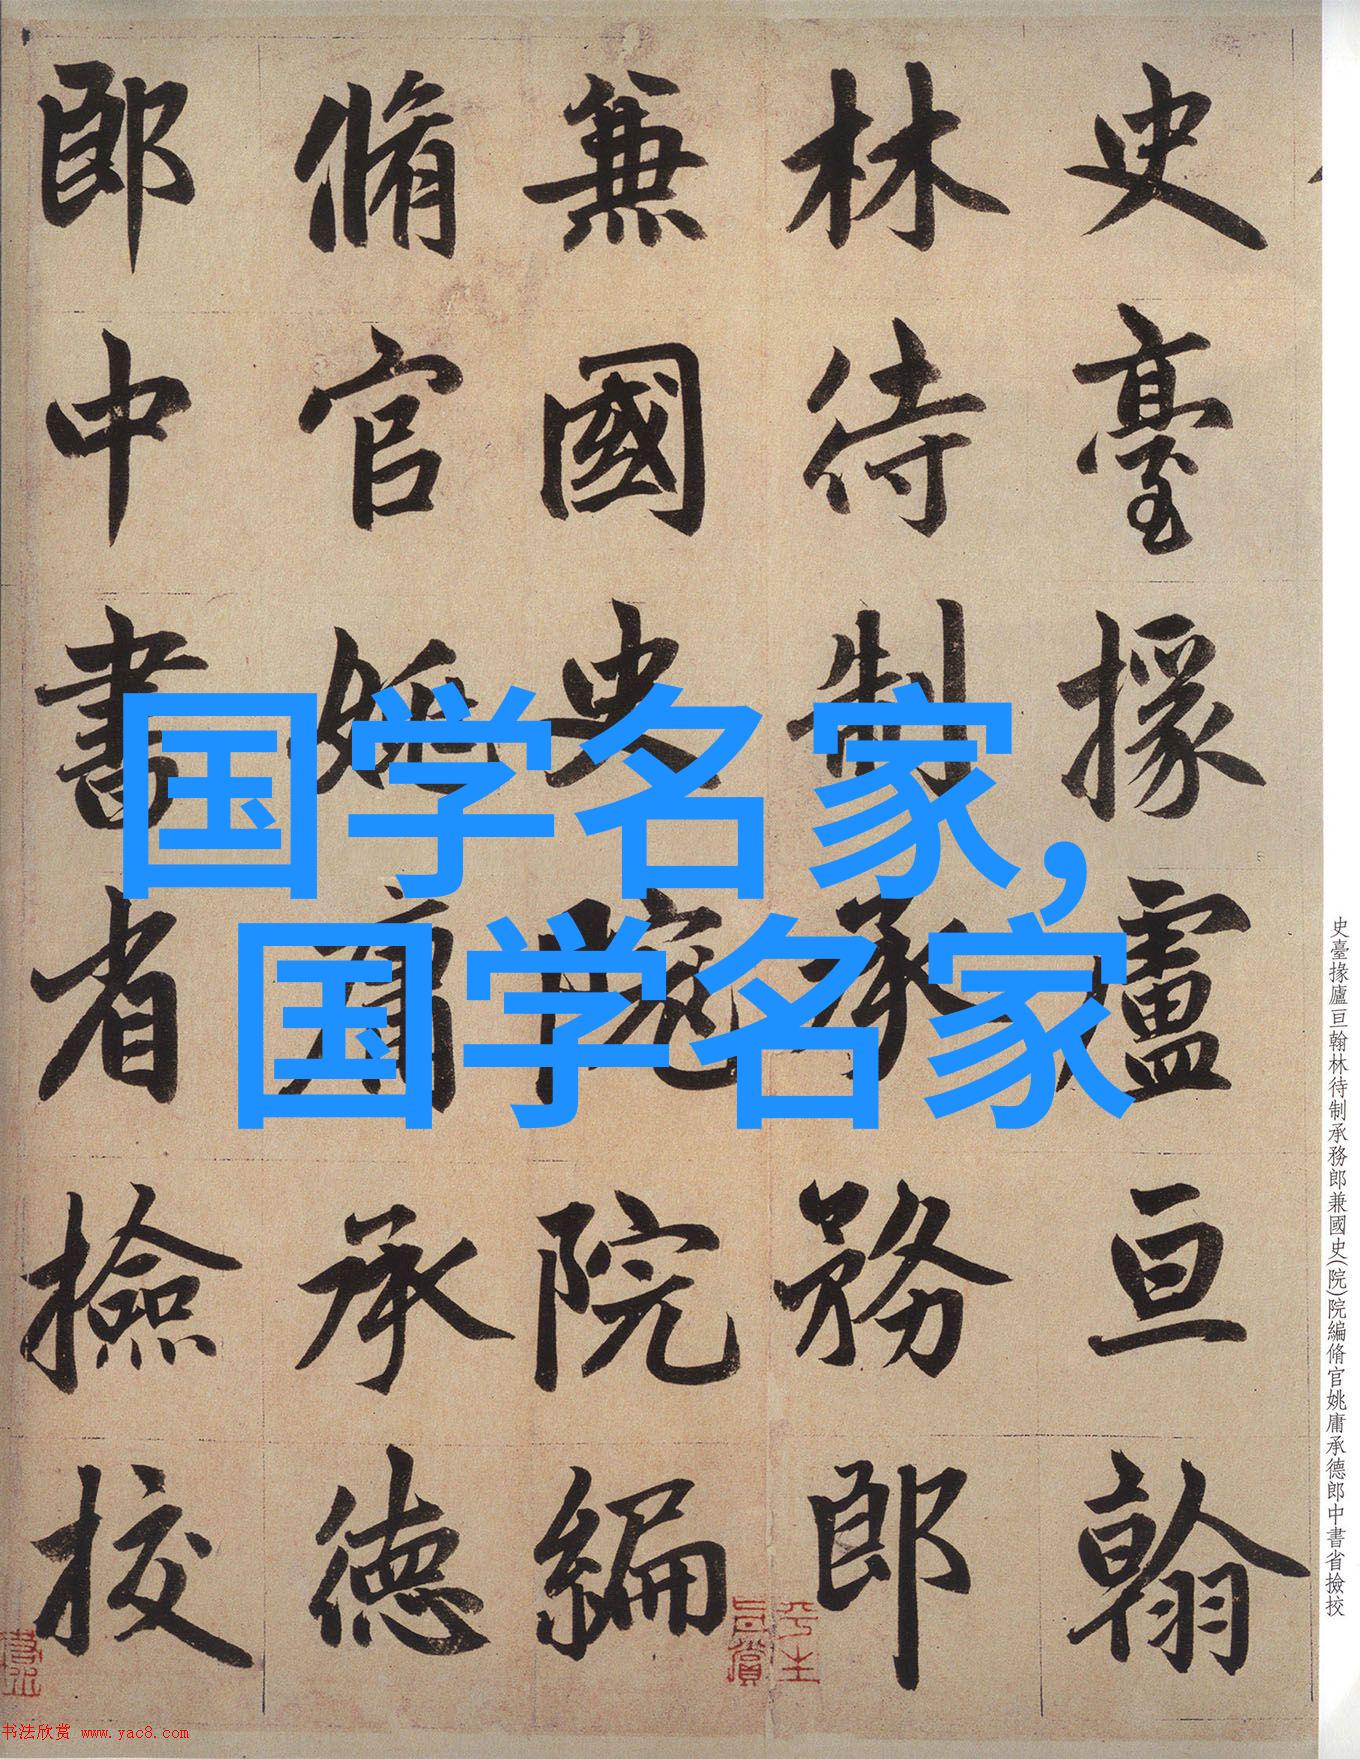 史臺掾盧亘翰
林待制承務郎
兼國史院院編
脩官姚庸承德
郎中書省撿挍
国学名家,
国学名家
史臺掾廬亘翰林待制承務郎兼國史(院)院編脩官姚庸承德郎中書省撿挍
书法欣赏 www.yac8.com